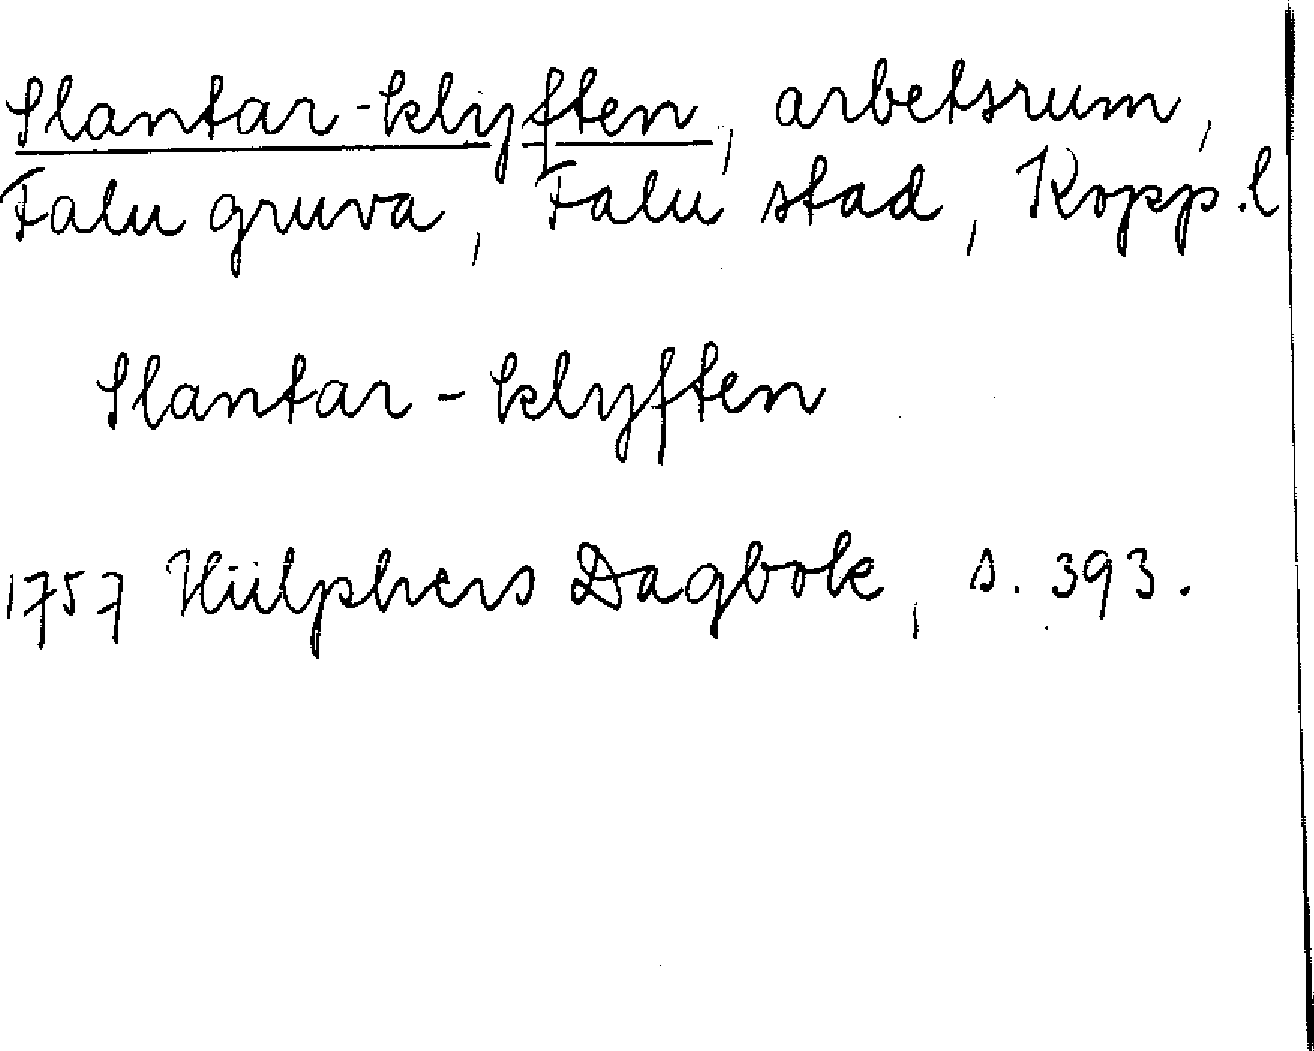 Slantar-klyften, arbetsrum,
Falu gruva, Falu stad, Kopp.l
Slantar-klyften
1757 Hülphers Dagbok, s. 393.